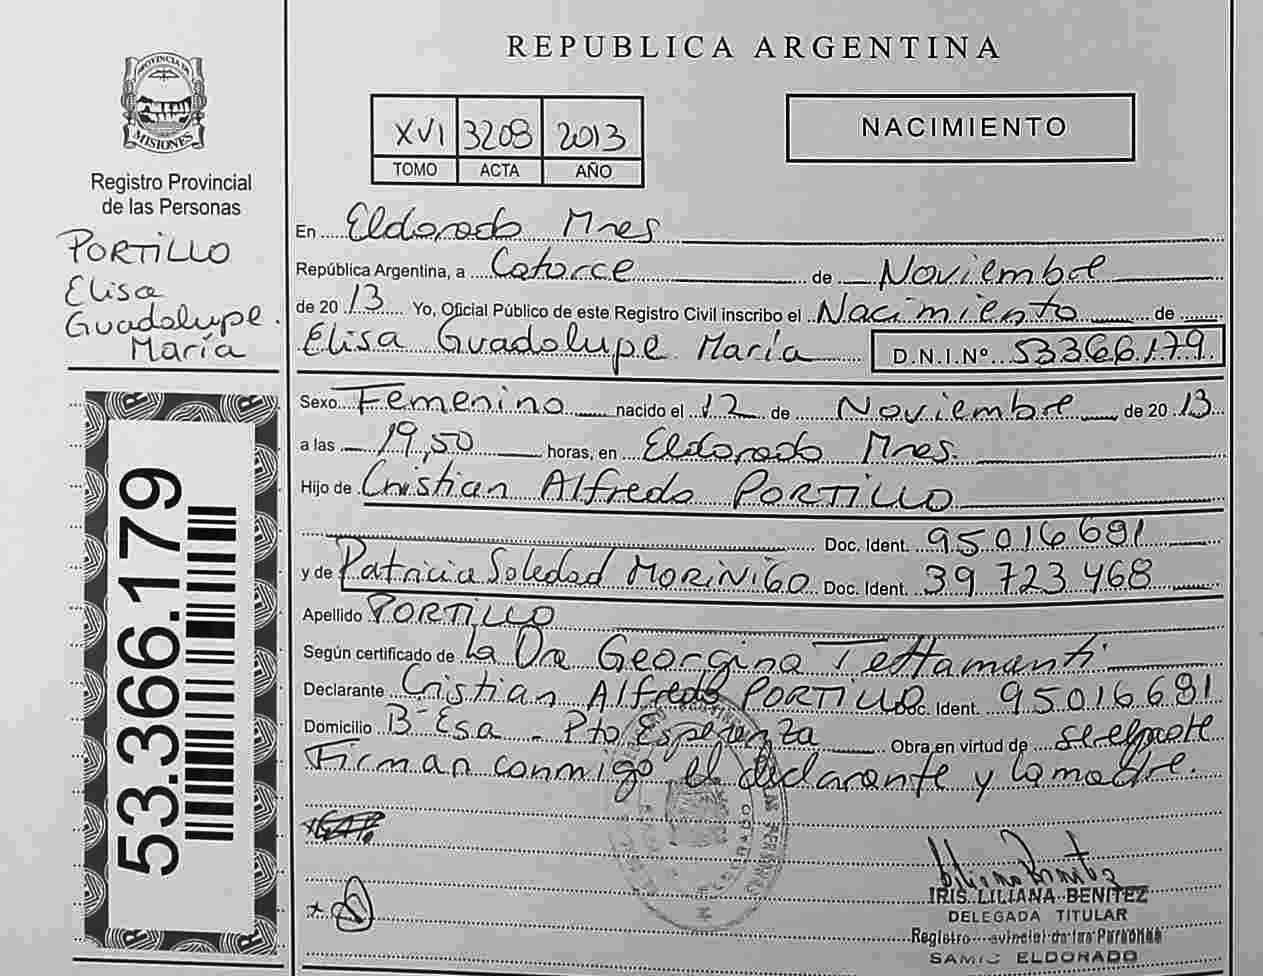 REPUBLICA ARGENTINA
PROVINCIA DE
MISIONES
Registro Provincial
de las Personas
PORTILLO
Elisa
Guadalupe
María
53.366.179
XVI 3208 2013
TOMO ACTA AÑO
NACIMIENTO
En Eldorado Mnes
República Argentina, a Catorce de Noviembre
de 2013 Yo, Oficial Público de este Registro Civil inscribo el Nacimiento de
Elisa Guadalupe María D.N.I.Nº 53366.179.
Sexo Femenino nacido el 12 de Noviembre de 2013
a las 19,50 horas, en Eldorado Mnes.
Hijo de Cristian Alfredo PORTILLO
Doc. Ident. 95016691
y de Patricia Soledad MORINIGO Doc. Ident. 39 723 468
Apellido PORTILLO
Según certificado de La Dra Georgina Tettamanti
Declarante Cristian Alfredo PORTILLO Doc. Ident. 95016691
Domicilio Bº Esa - Pto Esperanza Obra en virtud de
Firman conmigo el declarante y la madre.
IRIS LILIANA BENITEZ
DELEGADA TITULAR
Registro Provincial de las Personas
SAMIC ELDORADO